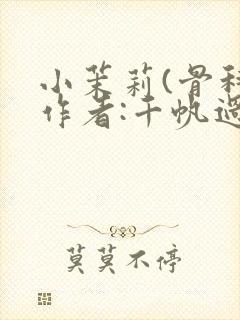 小茉莉(骨科
作者:千帆过
莫莫不停